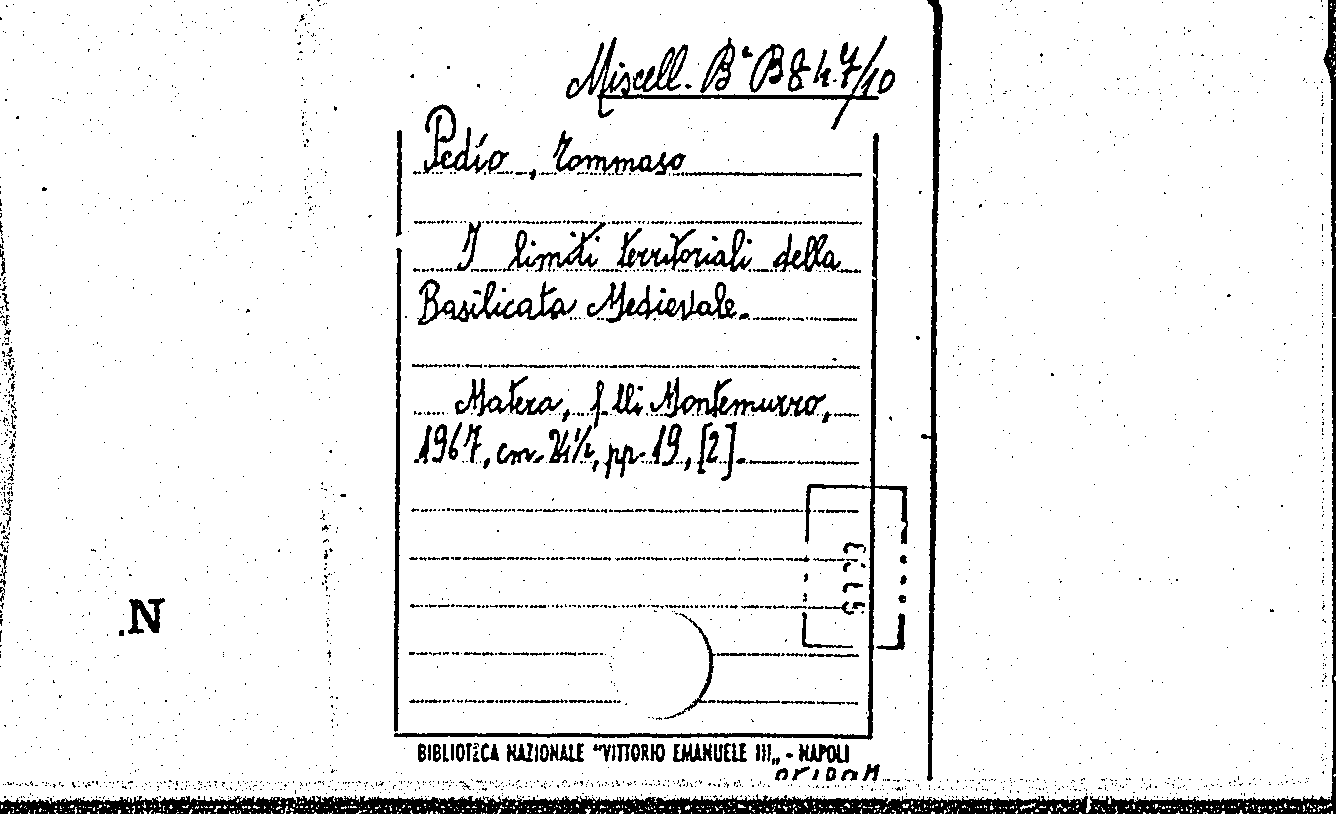 Miscell. Bª B847/10
Pedio, Tommaso
I limiti territoriali della
Basilicata Medievale.
Matera, f.lli Montemurro,
1967, cm. 24½, pp. 19, [2].
N
BIBLIOTECA NAZIONALE "VITTORIO EMANUELE III„ - NAPOLI